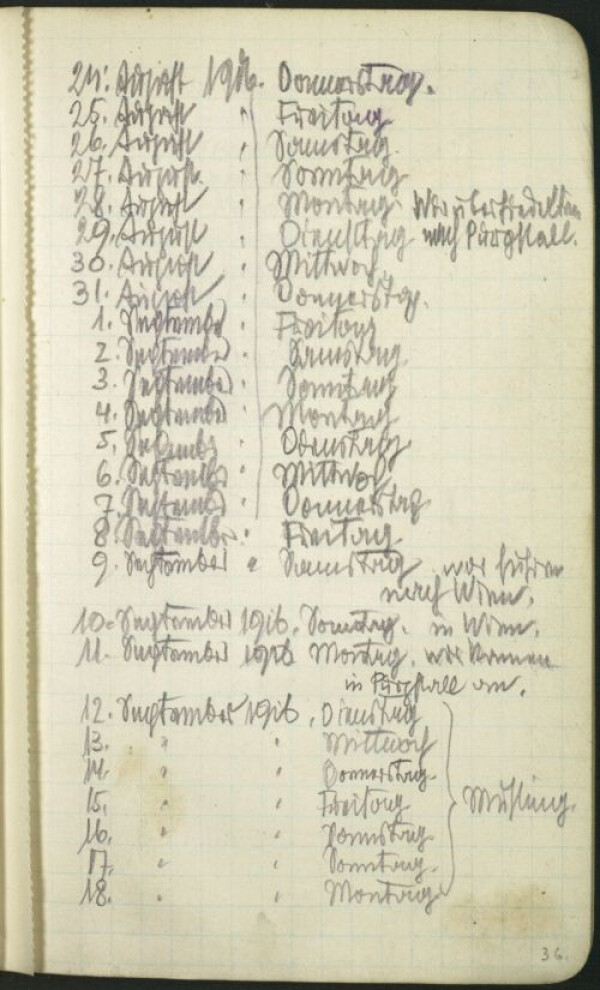 24. August 1916. Donnerstag.
25. August " Freitag
26. August " Samstag.
27. August. " Sonntag
28. August " Montag Wir übersiedelten
29. August " Dienstag nach Purgstall.
30. August " Mittwoch.
31. August " Donnerstag.
1. September " Freitag
2. September " Samstag.
3. September " Sonntag
4. September " Montag
5. September " Dienstag
6. September " Mittwoch
7. September " Donnerstag
8. September " Freitag
9. September " Samstag wir fuhren
nach Wien.
10. September 1916. Sonntag. in Wien.
11. September 1916 Montag. wir kamen
in Purgstall an.
12. September 1916. Dienstag
13. " " Mittwoch
14. " " Donnerstag.
15. " " Freitag
16. " " Samstag.
17. " " Sonntag.
18. " " Montag
Mühling.
36.